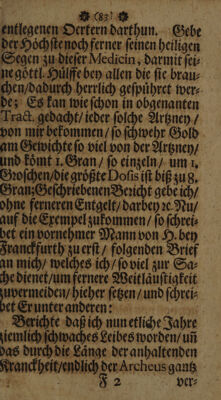 (83)
entlegenen Oertern darthun. Gebe
der Höchste noch ferner seinen heiligen
Segen zu dieser Medicin, darmit sei-
ne göttl. Hülffe bey allen die sie brau-
chen/dadurch herrlich gespühret wer-
de; Es kan wie schon in obgenanten
Tract. gedacht/ ieder solche Artzney/
von mir bekommen/ so schwehr Gold
am Gewichte so viel von der Artzney/
und kömt 1. Gran/ so einzeln/ um 1.
Groschen/die größte Dosis ist biß zu 8.
Gran; Geschriebenen Bericht gebe ich/
ohne ferneren Entgelt/ darbey ꝛc. Nu/
auf die Exempel zukommen/ so schrei-
bet ein vornehmer Mann von H. bey
Franckfurth zu erst/ folgenden Brief
an mich/ welches ich/ so viel zur Sa-
che dienet/um fernere Weitläustigkeit
zuvermeiden/ hieher setzen/ und schrei-
bet Er unter anderen:
Berichte daß ich nun etliche Jahre
ziemlich schwaches Leibes worden/ uñ
das durch die Länge der anhaltenden
Kranckheit/endlich der Archeus gantz
F 2 ver-